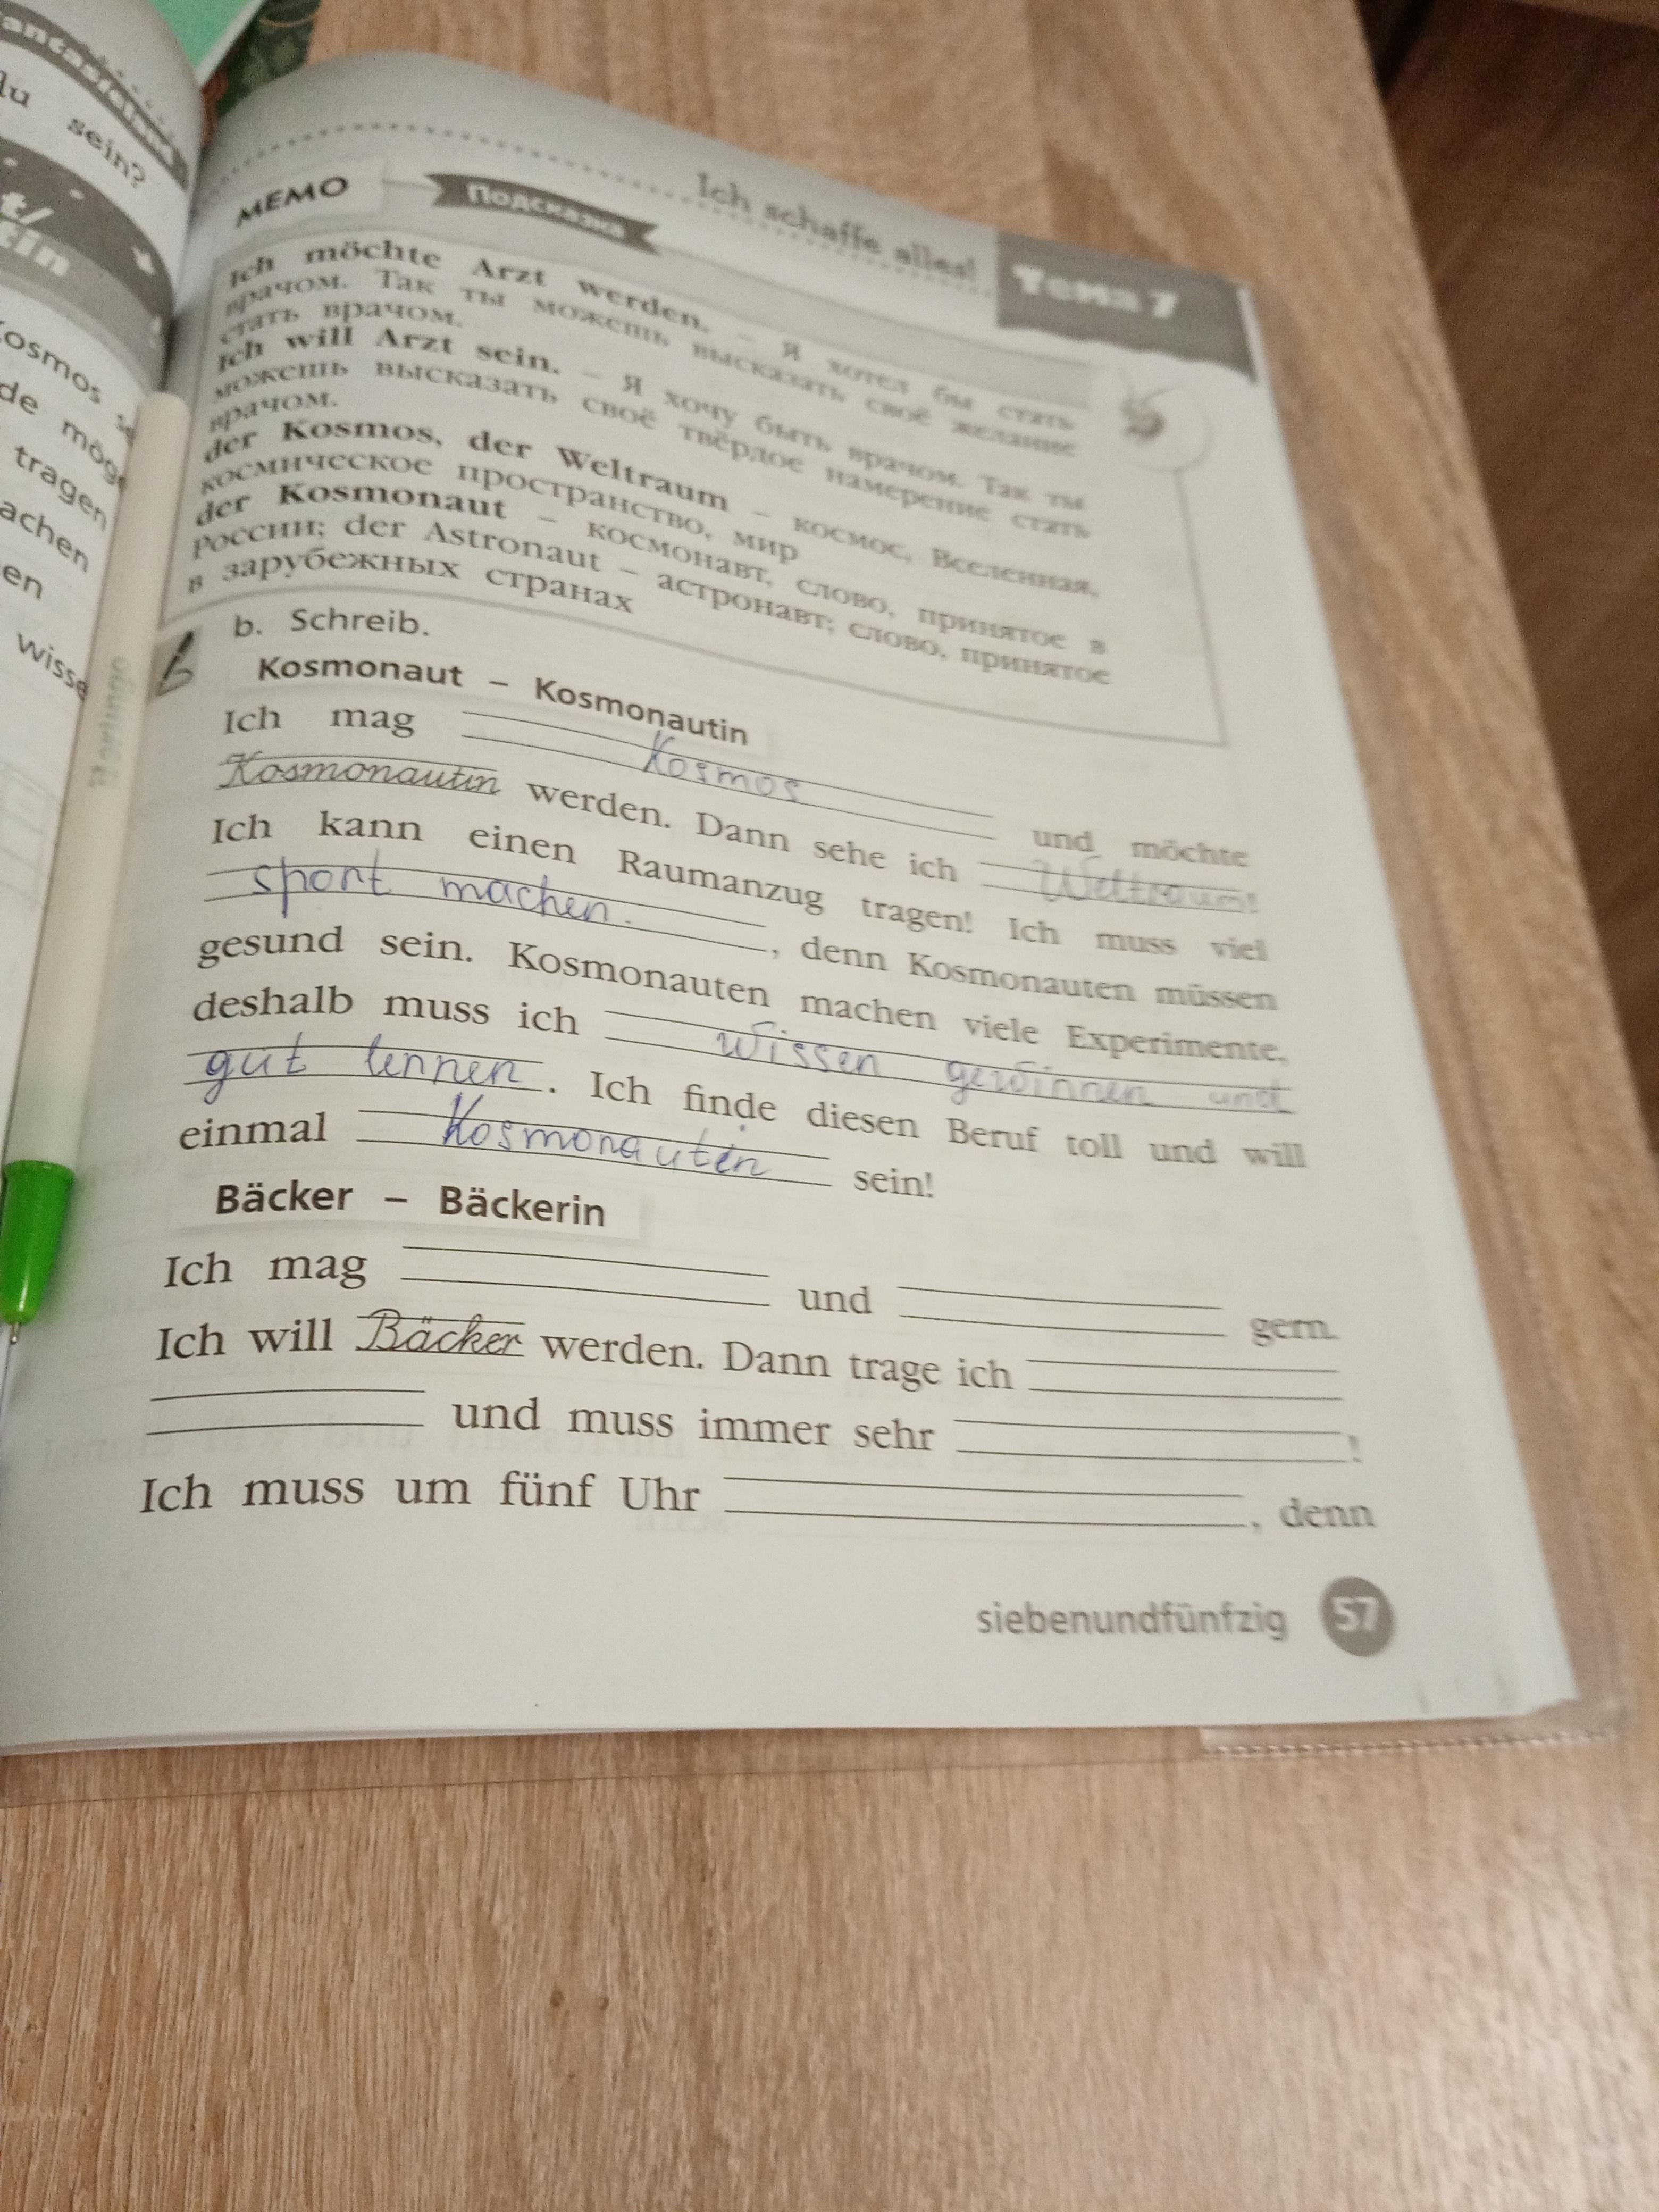 antastisch
du sein?
t/
tin
Kosmos
de mög
tragen
achen
en
wisse
Ich schaffe alles!
Тема 7
МЕМО
Подсказка
Ich möchte Arzt werden. – Я хотел бы стать
врачом. Так ты можешь высказать своё желание
стать врачом.
Ich will Arzt sein. – Я хочу быть врачом. Так ты
можешь высказать своё твёрдое намерение стать
врачом.
der Kosmos, der Weltraum – космос, Вселенная,
космическое пространство, мир
der Kosmonaut – космонавт, слово, принятое в
России; der Astronaut – астронавт; слово, принятое
в зарубежных странах
b. Schreib.
Kosmonaut – Kosmonautin
Ich mag Kosmos und möchte
Kosmonautin werden. Dann sehe ich Weltraum!
Ich kann einen Raumanzug tragen! Ich muss viel
sport machen. , denn Kosmonauten müssen
gesund sein. Kosmonauten machen viele Experimente,
deshalb muss ich wissen gewinnen und
gut lennen . Ich finde diesen Beruf toll und will
einmal Kosmonautin sein!
Bäcker – Bäckerin
Ich mag und gern.
Ich will Bäcker werden. Dann trage ich
und muss immer sehr !
Ich muss um fünf Uhr , denn
siebenundfünfzig 57